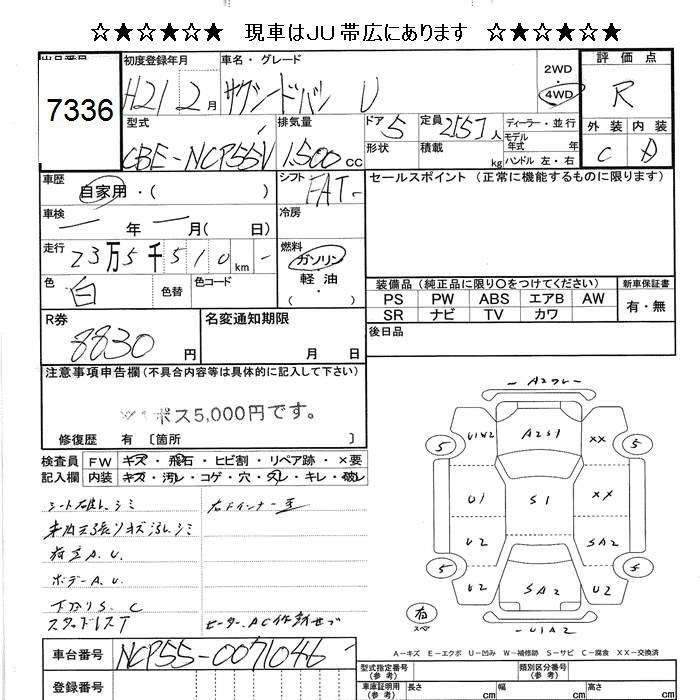 ☆★☆★☆★ 現車はJU帯広にあります ☆★☆★☆★
出品番号 初度登録年月 車名・グレード 評価点
7336 H21 2月 サクシードバン U 2WD 4WD R
外装 内装
C D
型式 排気量 ドア 定員 ディーラー・並行
CBE-NCP55V 1,500cc 5 人 モデル年式 年
形状 積載 kg ハンドル 左・右
車歴 自家用・( ) シフト FAT セールスポイント (正常に機能するものに限ります)
車検 年 月( 日) 冷房
走行 23万5千510km 燃料 ガソリン・軽油 ( )
色 白 色替 色コード
装備品(純正品に限り○をつけてください) 新車保証書
PS PW ABS エアB AW 有・無
SR ナビ TV カワ
R券 8830円 名変通知期限 月 日 後日品
注意事項申告欄(不具合内容等は具体的に記入して下さい)
ポス5,000円です。
修復歴 有〔箇所 〕
検査員 FW キズ・飛石・ヒビ割・リペア跡・×要
記入欄 内装 キズ・汚レ・コゲ・穴・スレ・キレ・破レ
シート破レシミ 右Fインナー
A.U.
ボデーA.U.
下廻りS.C
スタッドレスT ヒーター、AC
A2
U1W2 A2S1 XX
5 5
U1 S1 XX
U2 U2 SA2
5 5
U2 SA2 U2
有
スペア
U1A2
A-キズ E-エクボ U-凹み W-補修跡 S-サビ C-腐食 XX-交換済
車台番号 NCP55-0071046
登録番号
型式指定番号(参考) 類別区分番号(参考)
車庫証明用(参考) 長さ cm 幅 cm 高さ cm